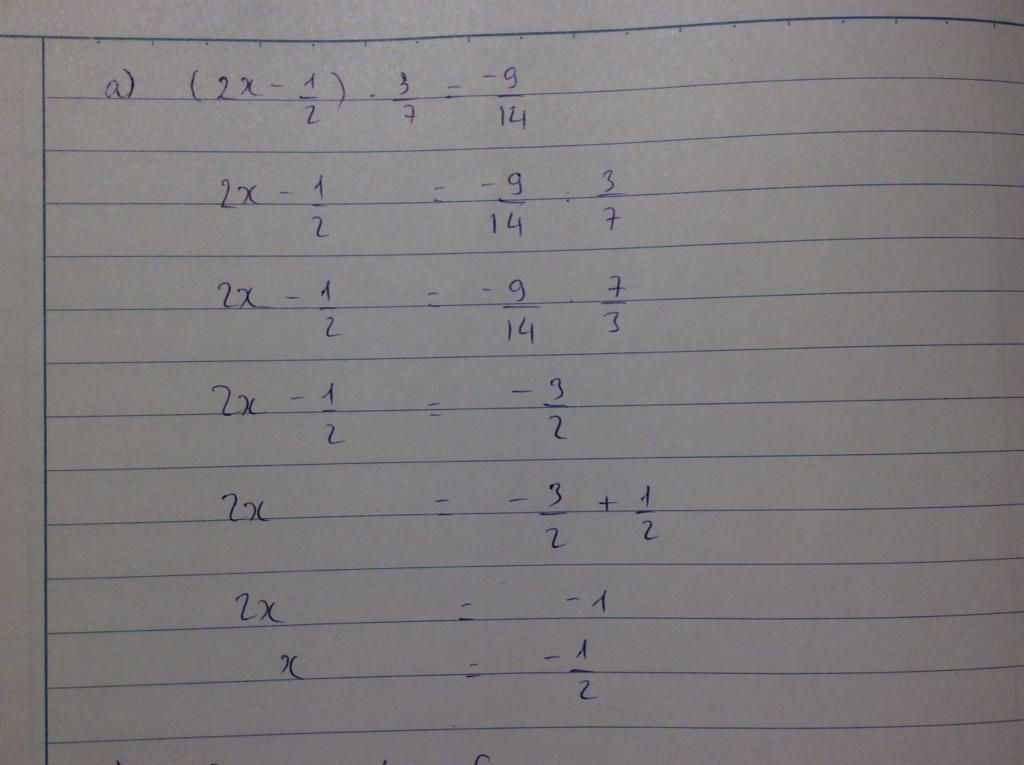 a) (2x - 1/2) . 3/7 = -9/14
2x - 1/2 = -9/14 : 3/7
2x - 1/2 = -9/14 . 7/3
2x - 1/2 = -3/2
2x = -3/2 + 1/2
2x = -1
x = -1/2